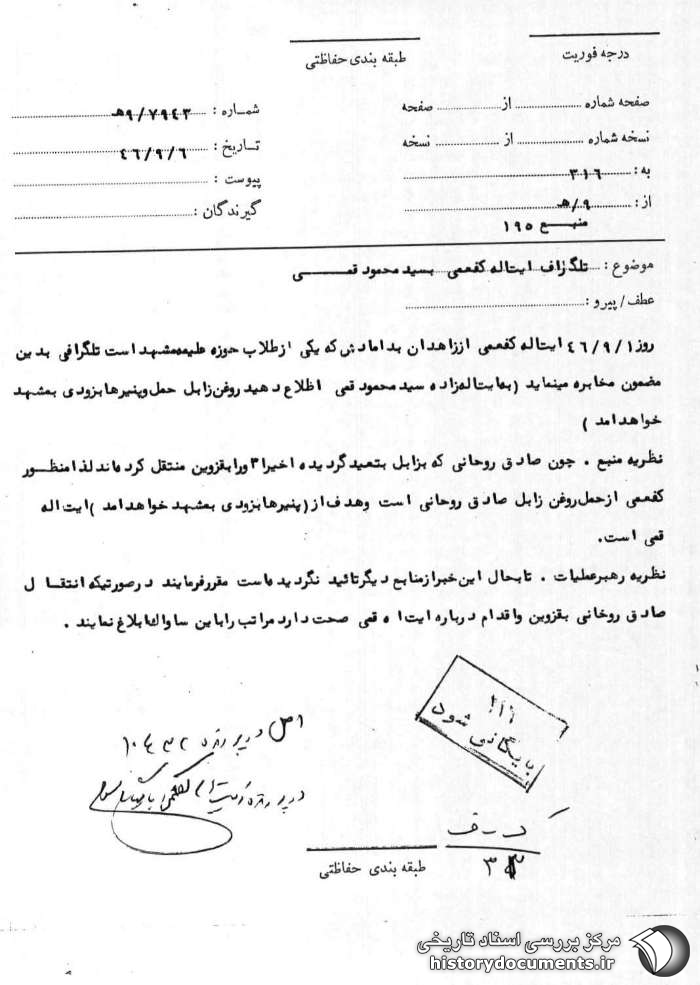 درجه فوریت
طبقه بندی حفاظتی
صفحه شماره از صفحه
شماره : ۹/۷۹۴۳هـ
نسخه شماره از نسخه
تاریخ : ۴۶/۹/۶
به : ۳۱۶
پیوست :
از : ۹/هـ
گیرندگان :
منبـــع ۱۹۵
موضوع : تلگراف ایتاله کفعمی بسید محمود قمـــی
عطف/پیرو :
روز ۴۶/۹/۱ ایتاله کفعمی اززاهدان بدامادش که یکی ازطلاب حوزه علمیه مشهد است تلگرافی بدین
مضمون مخابره مینماید (به ایتاله زاده سید محمود قمی اطلاع دهید روغن زابل حمل وپنیرها بزودی بمشهد
خواهدامد )
نظریه منبع . چون صادق روحانی که بزابل بتعید گردیده اخیرا ۳ ورا بقزوین منتقل کرده اند لذا منظـور
کفعمی ازحمل روغن زابل صادق روحانی است وهدف از (پنیرها بزودی بمشهد خواهدامد )ایت اله
قمی است.
نظریه رهبرعملیات . تابحال این خبرازمنابع دیگرتائید نگردیده است مقررفرمایند درصورتیکه انتقـــال
صادق روحانی بقزوین واقدام درباره ایت اه قمی صحت دارد مراتب راباین ساواک ابلاغ نمایند .
بایگانی شود
اصل در پرونده ۱۰۴۳۲
در پرونده آیت اله کفعمی بایگانی شود
ک ـ ف
طبقه بندی حفاظتی
مرکز بررسی اسناد تاریخی
historydocuments.ir